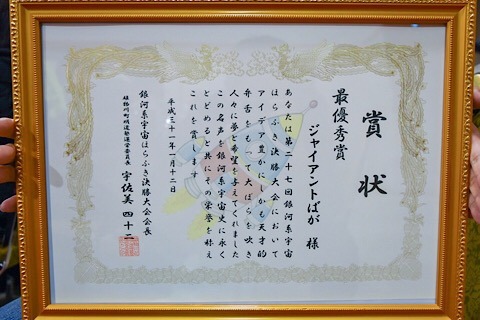 賞状
最優秀賞
ジャイアントばが 様
あなたは第二十七回銀河系宇宙
ほらふき決勝大会において
アイデア豊かにしかも天才的
弁舌をもって大ぼらを吹き
人々に夢と希望を与えてくれました
この名声を銀河系宇宙史に永く
とどめると共にその栄誉を称え
これを賞します
平成三十一年一月十二日
銀河系宇宙ほらふき決勝大会会長
宇佐美 四十二